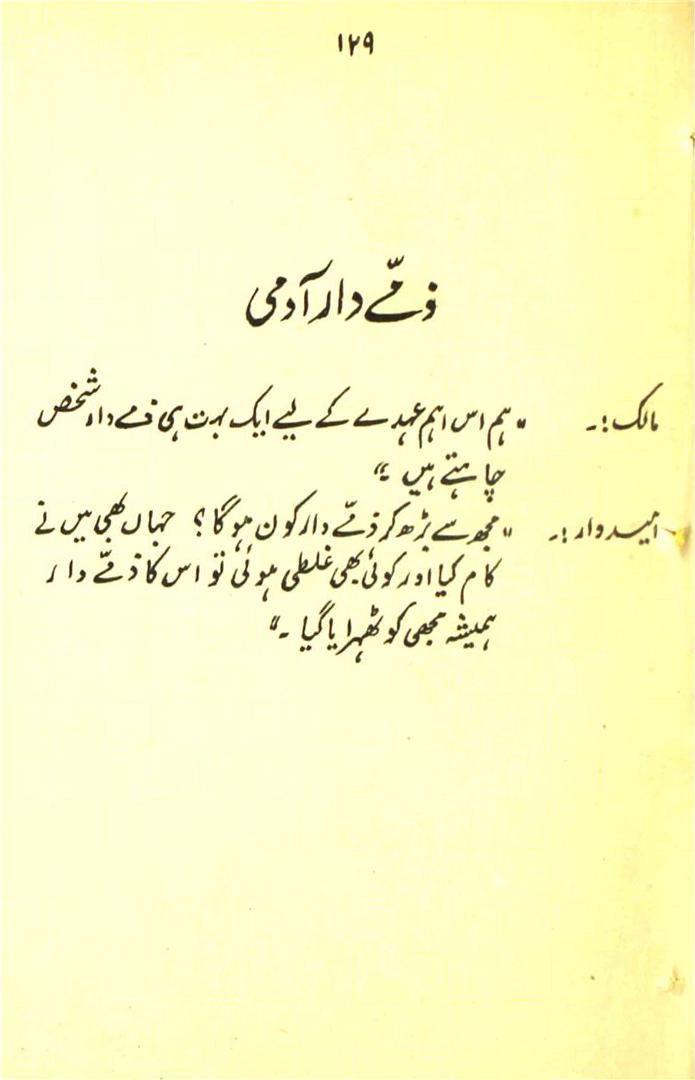 ۱۲۹
ذمّے دار آدمی
مالک :۔ "ہم اس اہم عہدے کے لیے ایک بہت ہی ذمے دار شخص
چاہتے ہیں ۔"
امیدوار :۔ "مجھ سے بڑھ کر ذمّے دار کون ہوگا؟ جہاں بھی میں نے
کام کیا اور کوئی بھی غلطی ہوئی تو اس کا ذمّے دار
ہمیشہ مجھی کو ٹھہرایا گیا ۔"